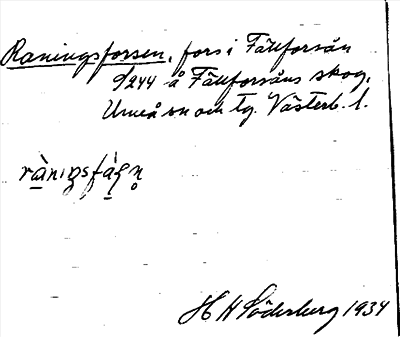 Raningsforsen, fors i Fällforsån
9/244 å Fällforsåns skog,
Umeå sn och tg. Västerb. l.
rànıgsfàɭn̥
H H Söderberg 1934